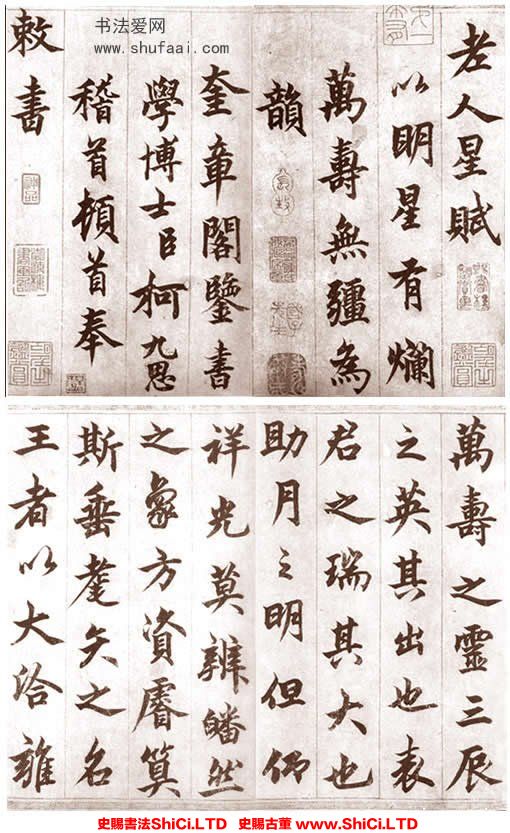 书法爱网
www.shufaai.com
老人星賦
以明星有爛
萬壽無疆為
韻
奎章閣鑒書
學博士臣柯九思
稽首頓首奉
敕書
萬壽之靈三辰
之英其出也表
君之瑞其大也
助月之明但仰
祥光莫辨皤然
之象方資睿算
斯垂耄矣之名
王者以大洽雍
史賜書法ShiCi.LTD 史賜古董 www.ShiCi.LTD